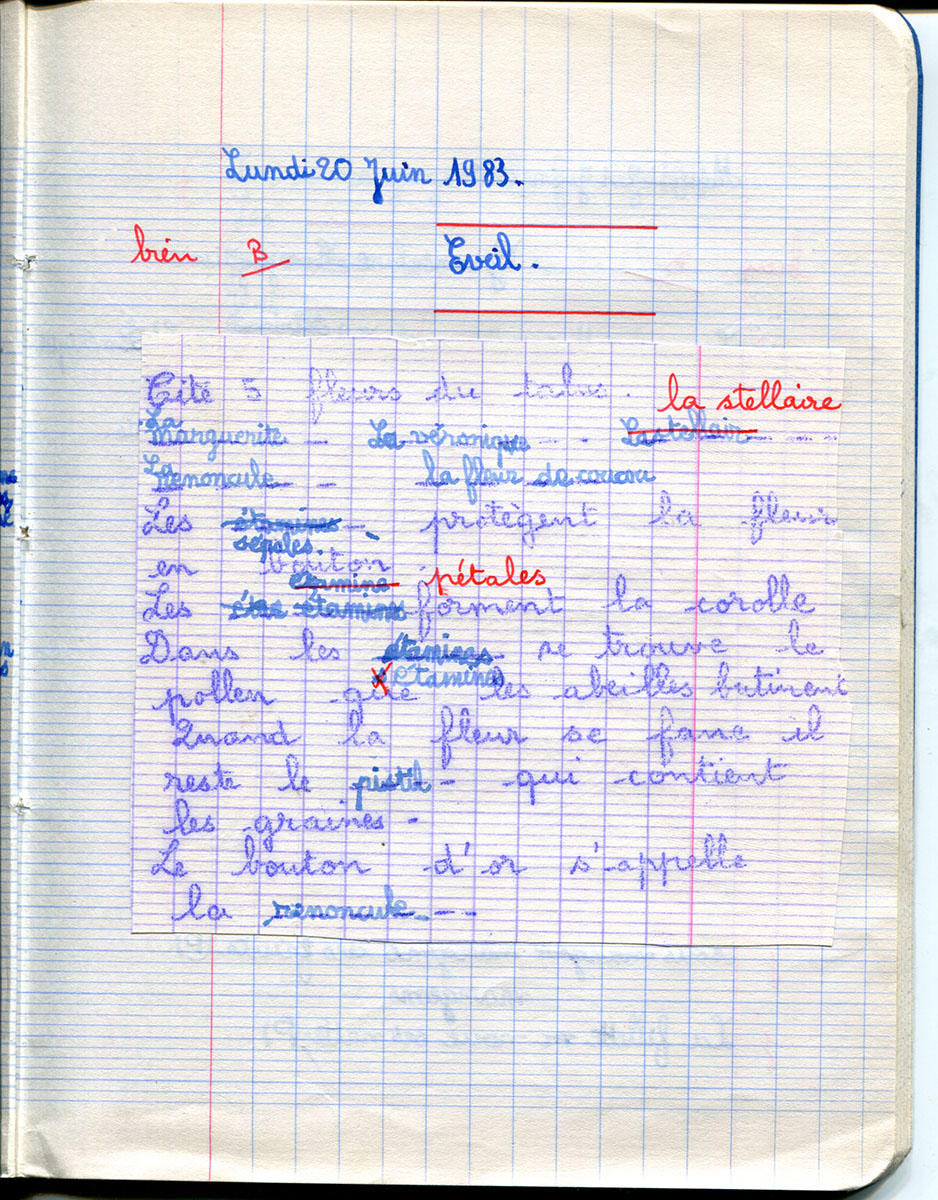 Lundi 20 Juin 1983.
bien B Eveil.
Cite 5 fleurs du talus. la stellaire
La Marguerite - La véronique - - La stellair - - -
La Renoncule - - la fleur de coucou
Les étamines - protègent la fleur
sépales.
en bouton
étamine pétales
Les étamines forment la corolle
Dans les étamines - se trouve le
étamine
pollen que les abeilles butinent
Quand la fleur se fane il
reste le pistil - qui contient
les graines -
Le bouton d'or s'appelle
la renoncule - - -